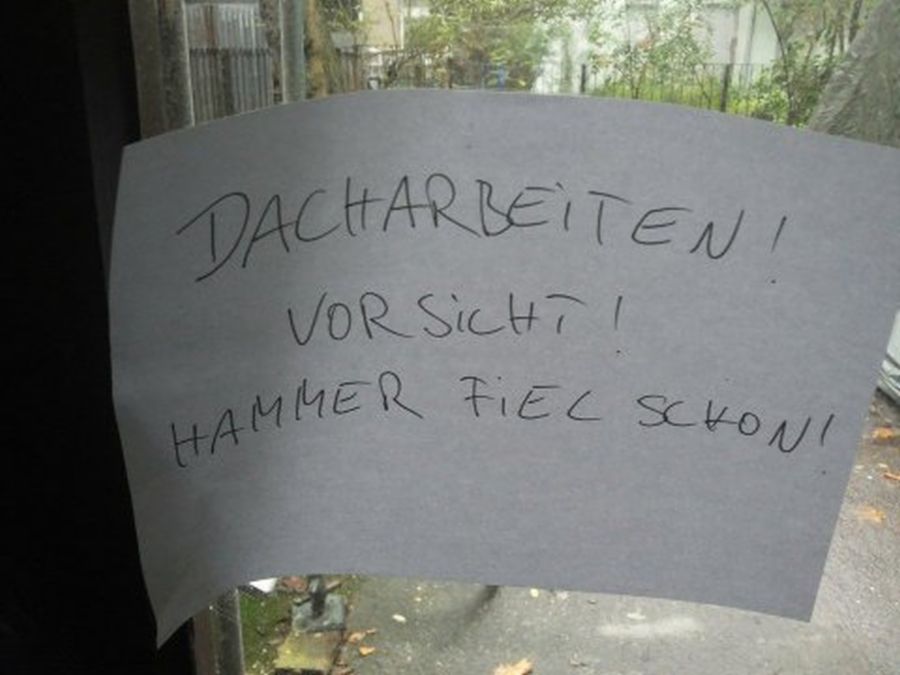 DACHARBEITEN!
VORSICHT!
HAMMER FIEL SCHON!